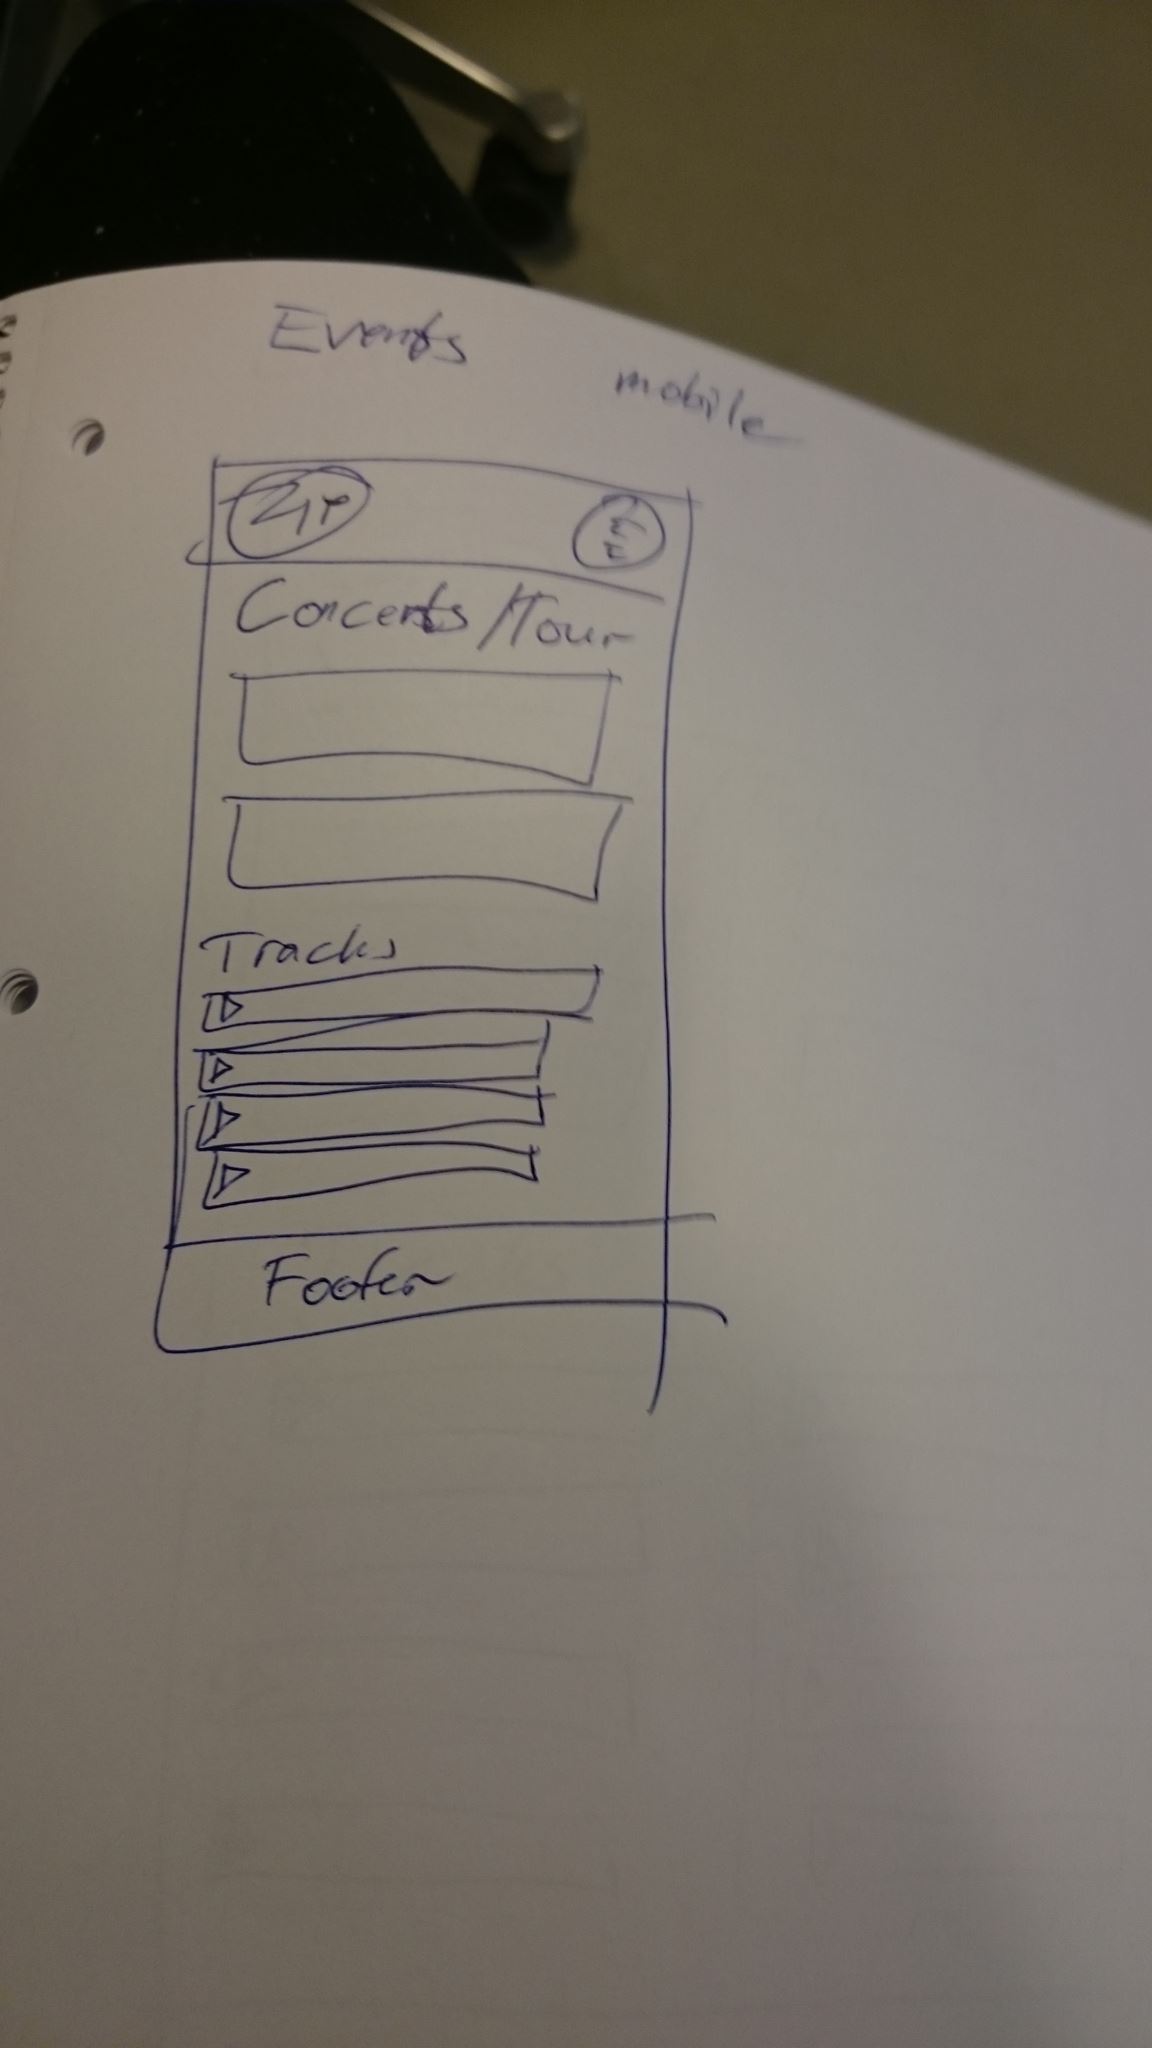 Events
mobile
Concerts/Tour
Tracks
Footer